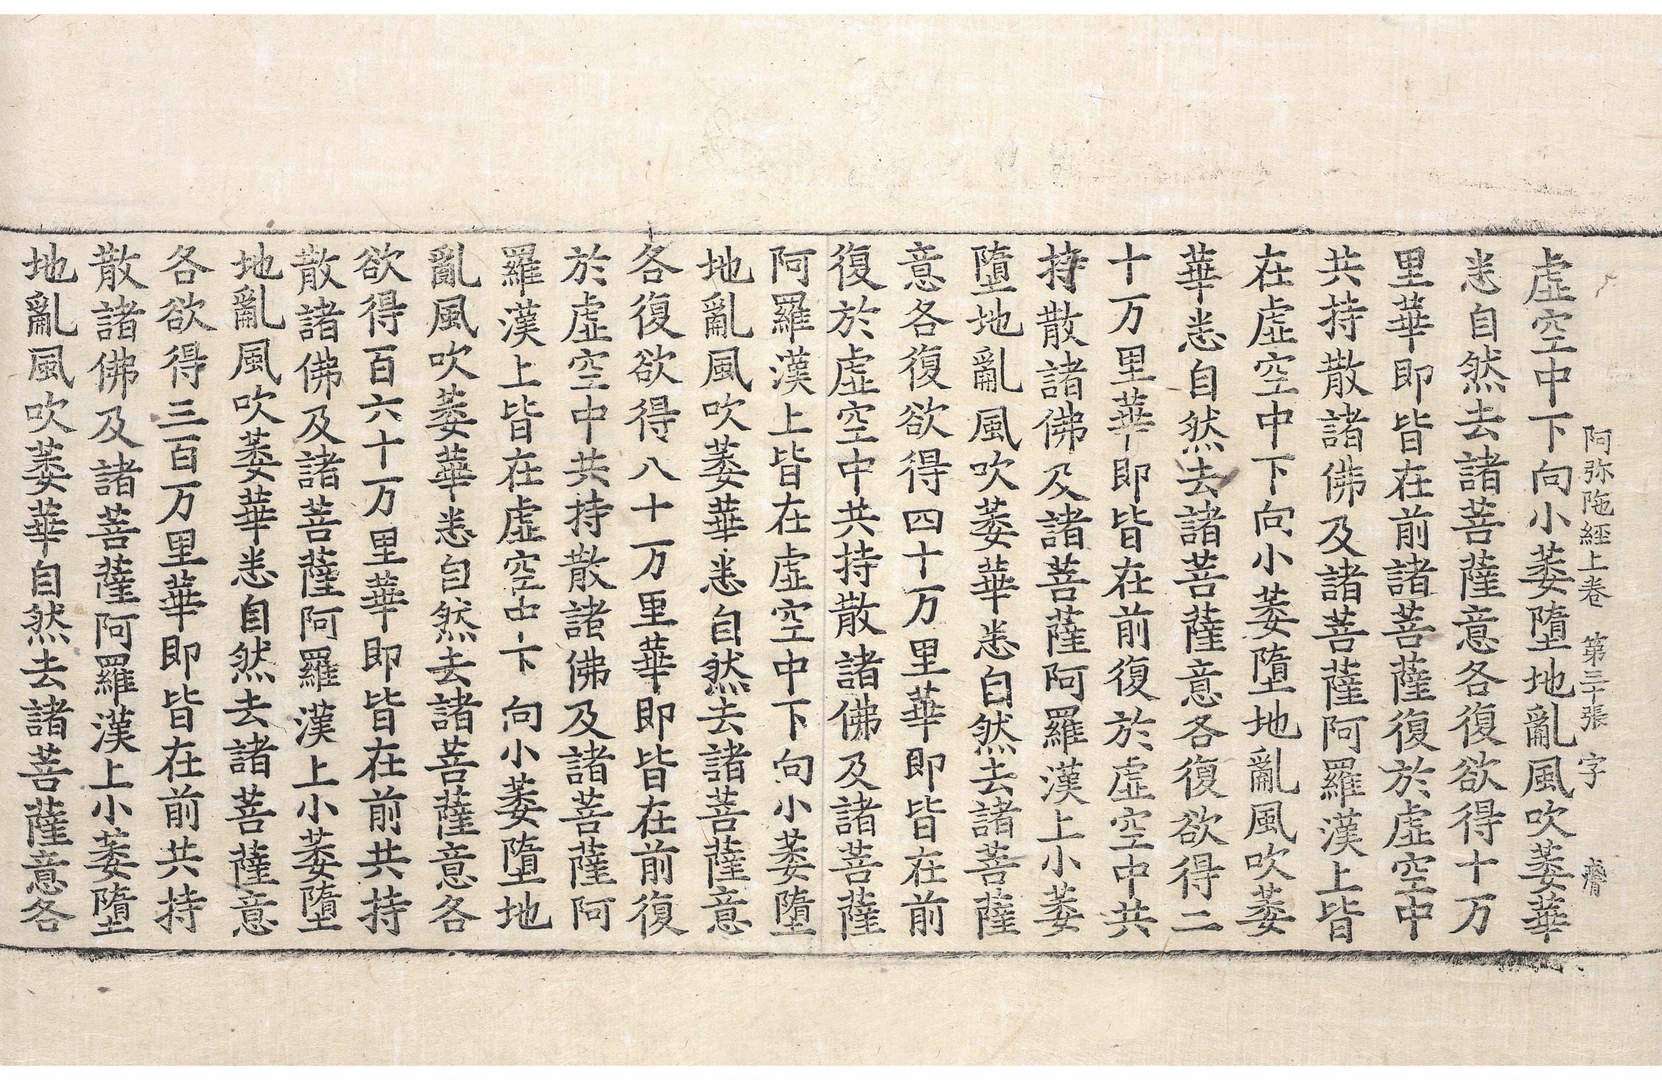 阿弥陁經上卷 第三十張 字
虛空中下向小萎墮地亂風吹萎華
悉自然去諸菩薩意各復欲得十万
里華即皆在前諸菩薩復於虛空中
共持散諸佛及諸菩薩阿羅漢上皆
在虛空中下向小萎墮地亂風吹萎
華悉自然去諸菩薩意各復欲得二
十万里華即皆在前復於虛空中共
持散諸佛及諸菩薩阿羅漢上小萎
墮地亂風吹萎華悉自然去諸菩薩
意各復欲得四十万里華即皆在前
復於虛空中共持散諸佛及諸菩薩
阿羅漢上皆在虛空中下向小萎墮
地亂風吹萎華悉自然去諸菩薩意
各復欲得八十万里華即皆在前復
於虛空中共持散諸佛及諸菩薩阿
羅漢上皆在虛空中下向小萎墮地
亂風吹萎華悉自然去諸菩薩意各
欲得百六十万里華即皆在前共持
散諸佛及諸菩薩阿羅漢上小萎墮
地亂風吹萎華悉自然去諸菩薩意
各欲得三百万里華即皆在前共持
散諸佛及諸菩薩阿羅漢上小萎墮
地亂風吹萎華自然去諸菩薩意各